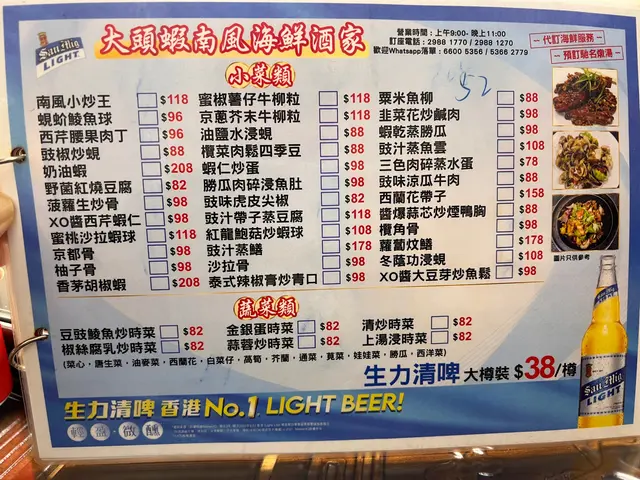 San Mig
LIGHT
大頭蝦南風海鮮酒家
營業時間：上午9:00- 晚上11:00
訂座電話：2988 1770 / 2988 1270
歡迎Whatsapp落單：6600 5356 / 5366 2779
－ 代訂海鮮服務 －
－ 預訂馳名燉湯 －
小菜類
52
南風小炒王 $118
蜆蚧鯪魚球 $96
西芹腰果肉丁 $96
豉椒炒蜆 $88
奶油蝦 $208
野菌紅燒豆腐 $82
菠蘿生炒骨 $98
XO醬西芹蝦仁 $98
蜜桃沙拉蝦球 $118
京都骨 $98
柚子骨 $98
香茅胡椒蝦 $208
蜜椒薯仔牛柳粒 $118
京蔥芥末牛柳粒 $118
油鹽水浸蜆 $88
欖菜肉鬆四季豆 $88
蝦仁炒蛋 $98
勝瓜肉碎浸魚肚 $98
豉味虎皮尖椒 $82
豉汁帶子蒸豆腐 $118
紅龍鮑菇炒蝦球 $108
豉汁蒸鱔 $178
沙拉骨 $98
泰式辣椒膏炒青口 $98
粟米魚柳 $88
韭菜花炒鹹肉 $88
蝦乾蒸勝瓜 $98
豉汁蒸魚雲 $108
三色肉碎蒸水蛋 $78
豉味涼瓜牛肉 $88
西蘭花帶子 $158
醬爆蒜芯炒煙鴨胸 $88
欖角骨 $98
蘿蔔炆鱔 $178
冬蔭功浸蜆 $108
XO醬大豆芽炒魚鬆 $98
圖片只供參考
蔬菜類
豆豉鯪魚炒時菜 $82
金銀蛋時菜 $82
清炒時菜 $82
椒絲腐乳炒時菜 $82
蒜蓉炒時菜 $82
上湯浸時菜 $82
(菜心，唐生菜，油麥菜，西蘭花，白菜仔，高筍，芥蘭，通菜，莧菜，娃娃菜，勝瓜，西洋菜)
生力清啤 大樽裝 $38/樽
生力清啤 香港 No.1 LIGHT BEER!
輕盈·微醺
San Mig
LIGHT